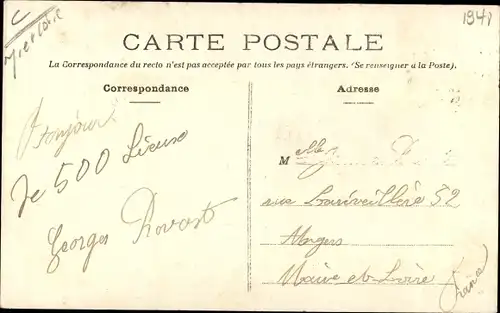 C
1941
CARTE POSTALE
La Correspondance du recto n'est pas acceptée par tous les pays étrangers. (Se renseigner à la Poste).
Correspondance
Adresse
Bonjour
de 500 Lieues
Georges Provost
M elle
rue Lariveillère 52
Angers
Maine et Loire